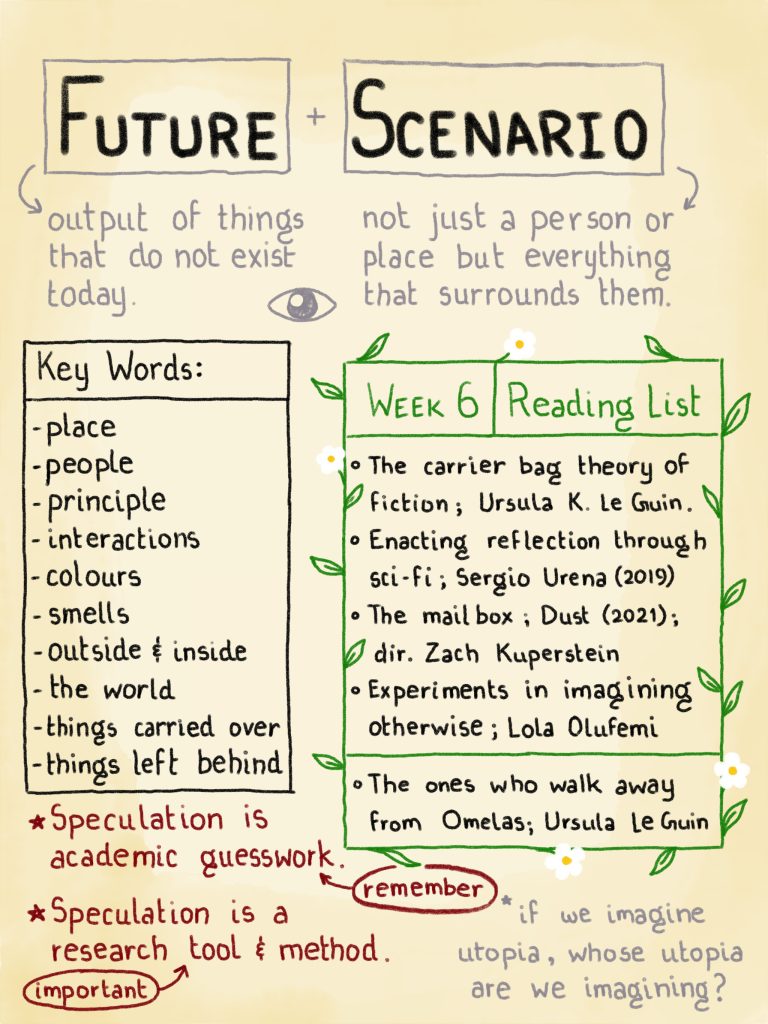 FUTURE + SCENARIO
output of things
that do not exist
today.
not just a person or
place but everything
that surrounds them.
Key Words:
- place
- people
- principle
- interactions
- colours
- smells
- outside & inside
- the world
- things carried over
- things left behind
WEEK 6 Reading List
• The carrier bag theory of
fiction; Ursula K. Le Guin.
• Enacting reflection through
sci-fi; Sergio Urena (2019)
• The mailbox; Dust (2021);
dir. Zach Kuperstein
• Experiments in imagining
otherwise; Lola Olufemi
• The ones who walk away
from Omelas; Ursula Le Guin
★ Speculation is
academic guesswork.
remember
★ Speculation is a
research tool & method.
important
*if we imagine
utopia, whose utopia
are we imagining?